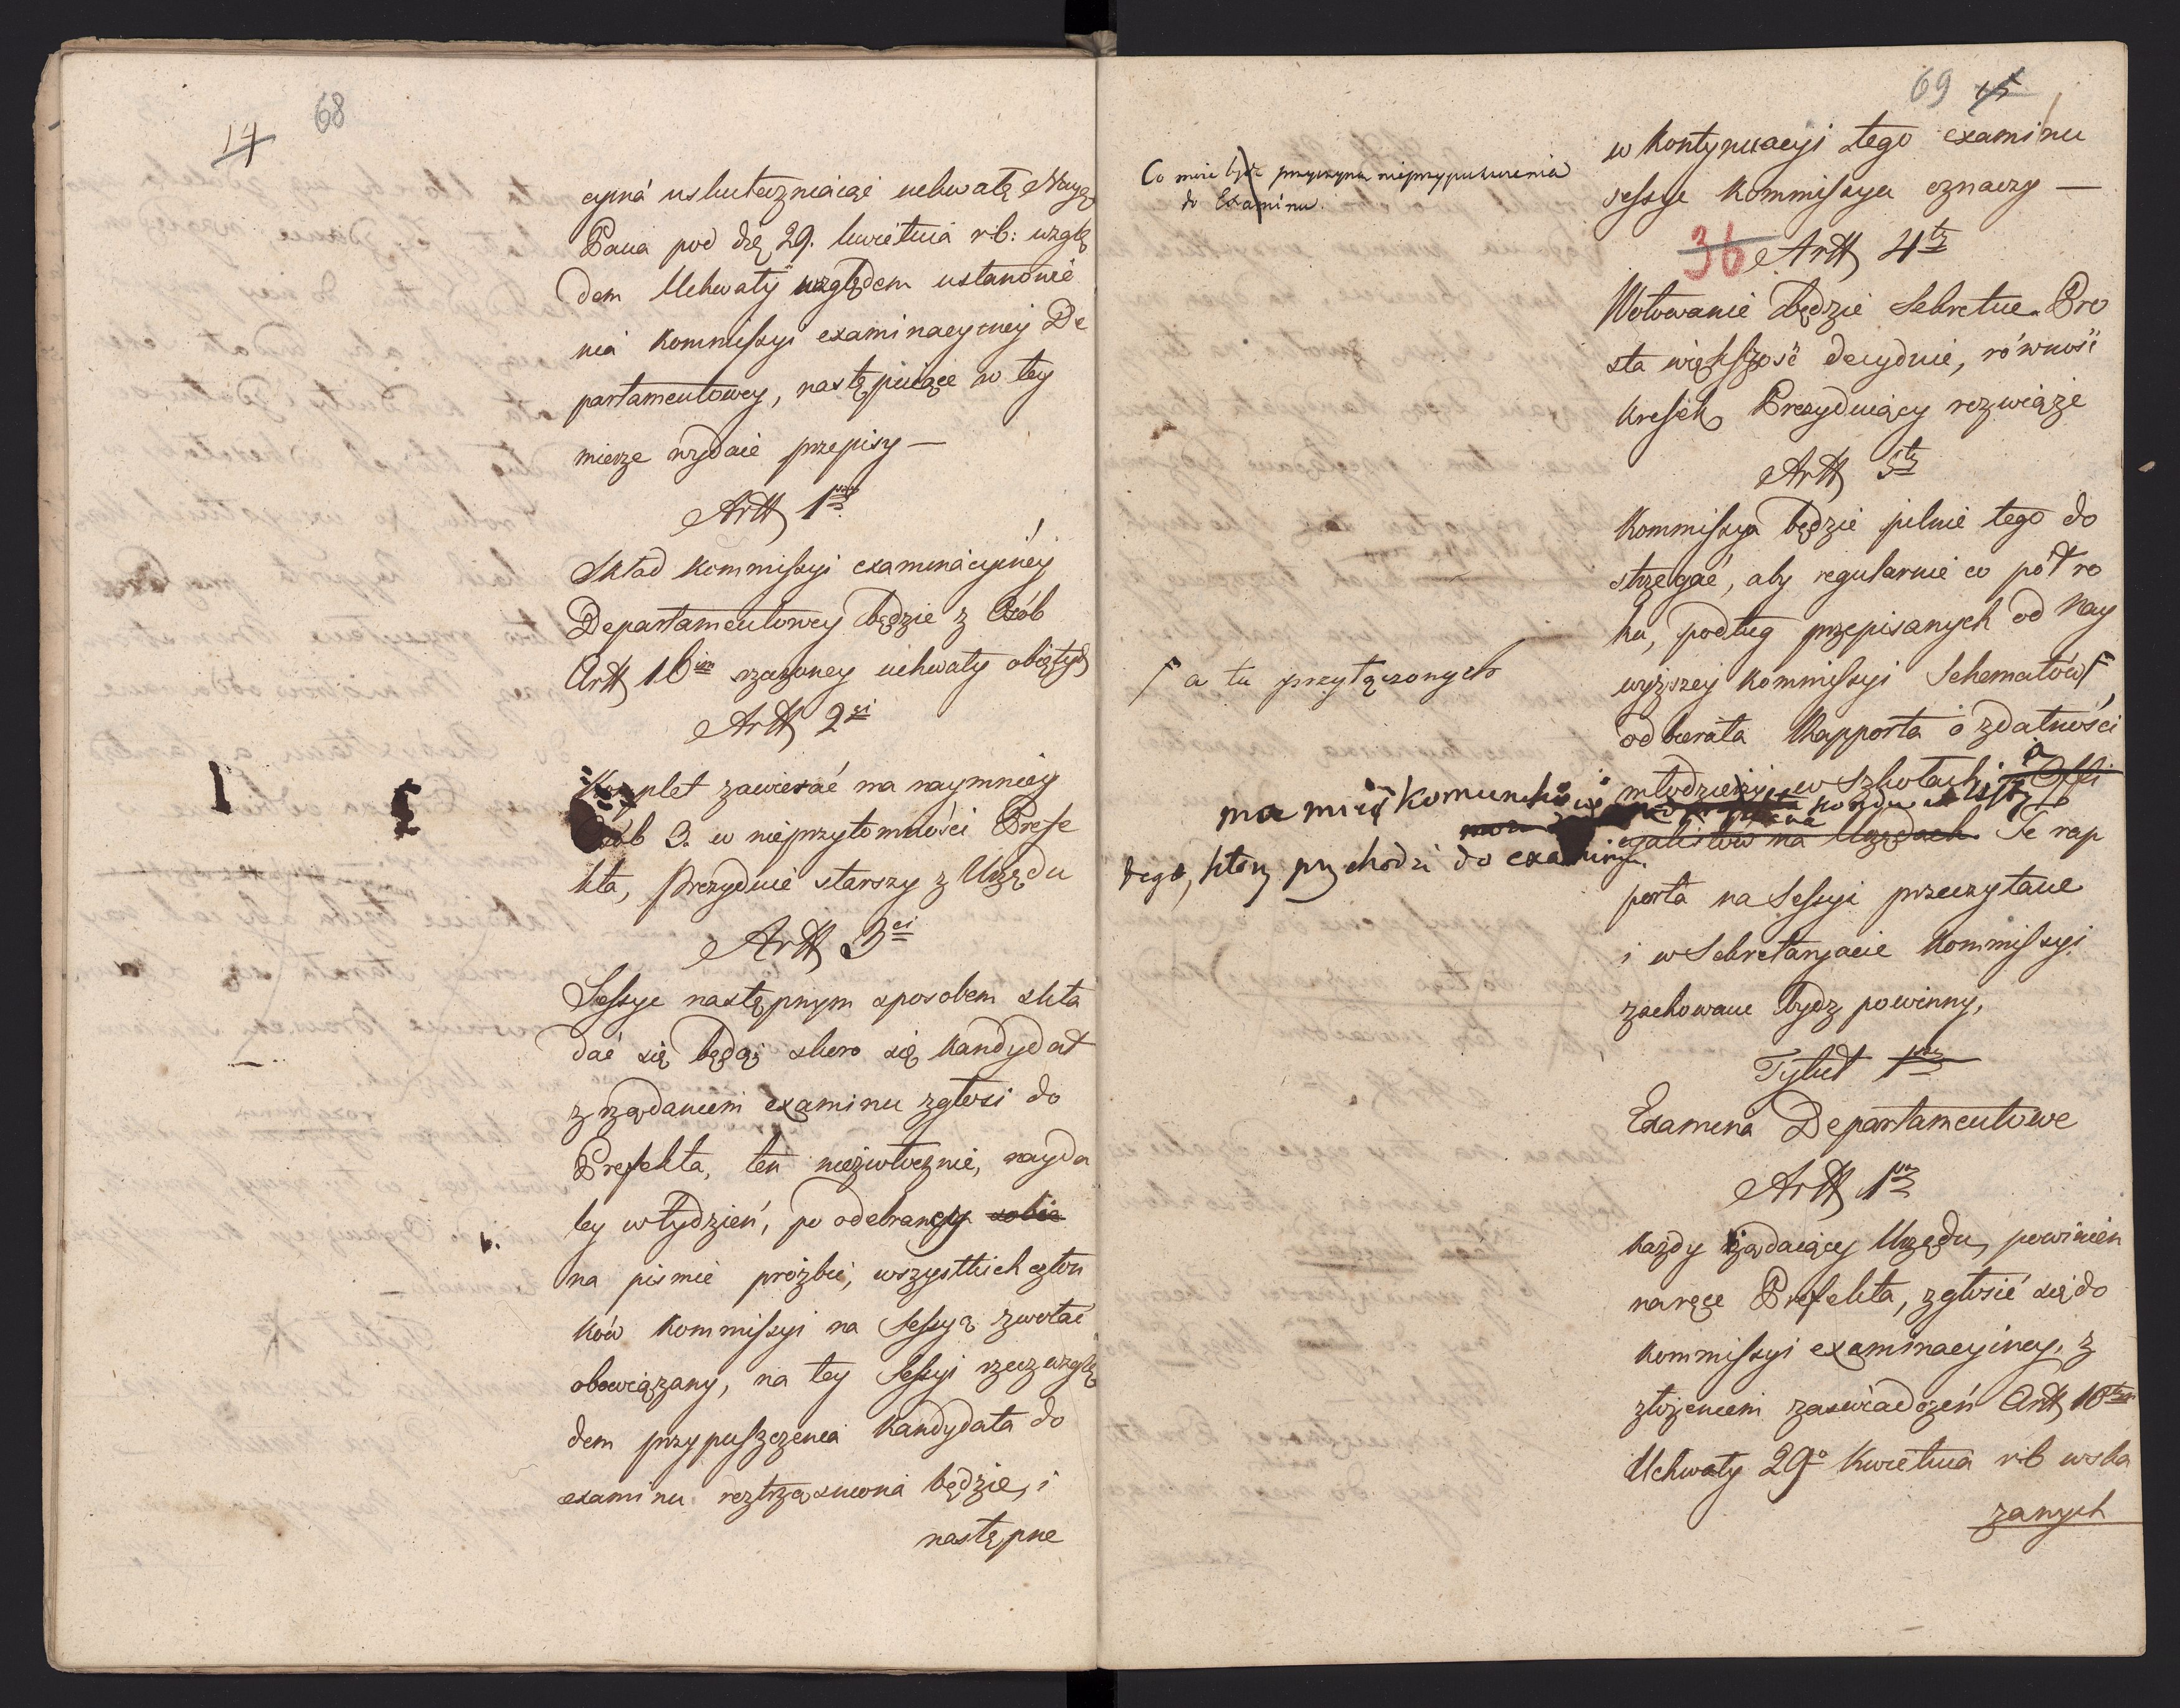 14 68
cyina uskuteczniaiąc uchwałę Nayj
Pana pod dię 29. kwietnia r.b: wzglę
dem Uchwały względem ustanowie
nia Kommissyi examinacyiney De
partamentowey, następuiące w tey
mierze wydaie przepisy —
Artt 1wszy
Skład Kommissyi examinacyiney
Departamentowey będzie z Osób
Artt 16im rzeczoney uchwały obiętych
Artt 2gi
Komplet zawierać ma naymniey
Osób 3. w nieprzytomności Prefe
kta, Prezyduie starszy z Urzędu
Artt 3ci
Sessye następnym sposobem skła
dać się będą; skoro się kandydat
z rządaniem examinu zgłosi do
Prefekta, ten niezwłocznie, nayda
ley w tydzień, po odebraney sobie
na pismie proźbie, wszystkich człon
ków Kommissyi na Sessyą zwołać
obowiązany, na tey Sessyi rzecz wzglę
dem przypuszczenia Kandydata do
examinu roztrząsniona będzie, i
następne
69 15
Co może być przyczyną nieprzypuszczenia
do Examinu.
w kontynuacyi tego examinu
sessye Kommissya oznaczy —
36 Artt 4ty
Wotowanie będzie Sekretne. Pro
sta większość decyduie, równość
kresek Prezyduiący rozwiąże
Artt 5ty
Kommissya będzie pilnie tego do
strzegać, aby regularnie co pół ro
ku, podług przepisanych od Nay
wyższey Kommissyi Schematów F
F a tu przyłączonych
odbierała Rapporta o zdatności
młodzieży w Szkołach, i Offi
ma mieć komunikowaną
cyalistów na Urzędach. Te rap
tego, który przychodzi do examinu.
porta na Sessyi przeczytane
i w Sekretaryacie Kommissyi
zachowane bydz powinny,
Tytuł 1wszy
Examina Departamentowe
Artt 1wszy
każdy żądaiący Urzędu, powinien
na ręce Prefekta, zgłosić się do
Kommissyi examinacyiney, z
złożeniem zaświadczeń Artt 10tym
Uchwały 29o Kwietnia r.b wska
zanych